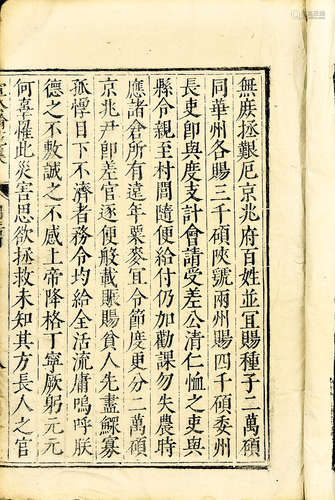 無庶拯艱厄京兆府百姓並宜賜種子二萬碩
同華州各賜三千碩陝虢兩州賜四千碩委州
長吏卽與度支計會請受差公清仁恤之吏與
縣令親至村閭隨便給付仍加勸課勿失農時
應諸倉所有遠年粟麥宜令節度更分二萬碩
京兆尹卽差官逐便般載賑賜貧人先盡鰥寡
孤惸目下不濟者務令均給全活流庸嗚呼朕
德之不敷誠之不感上帝降格丁寧厥躬元元
何辜罹此災害思欲拯救未知其方長人之官